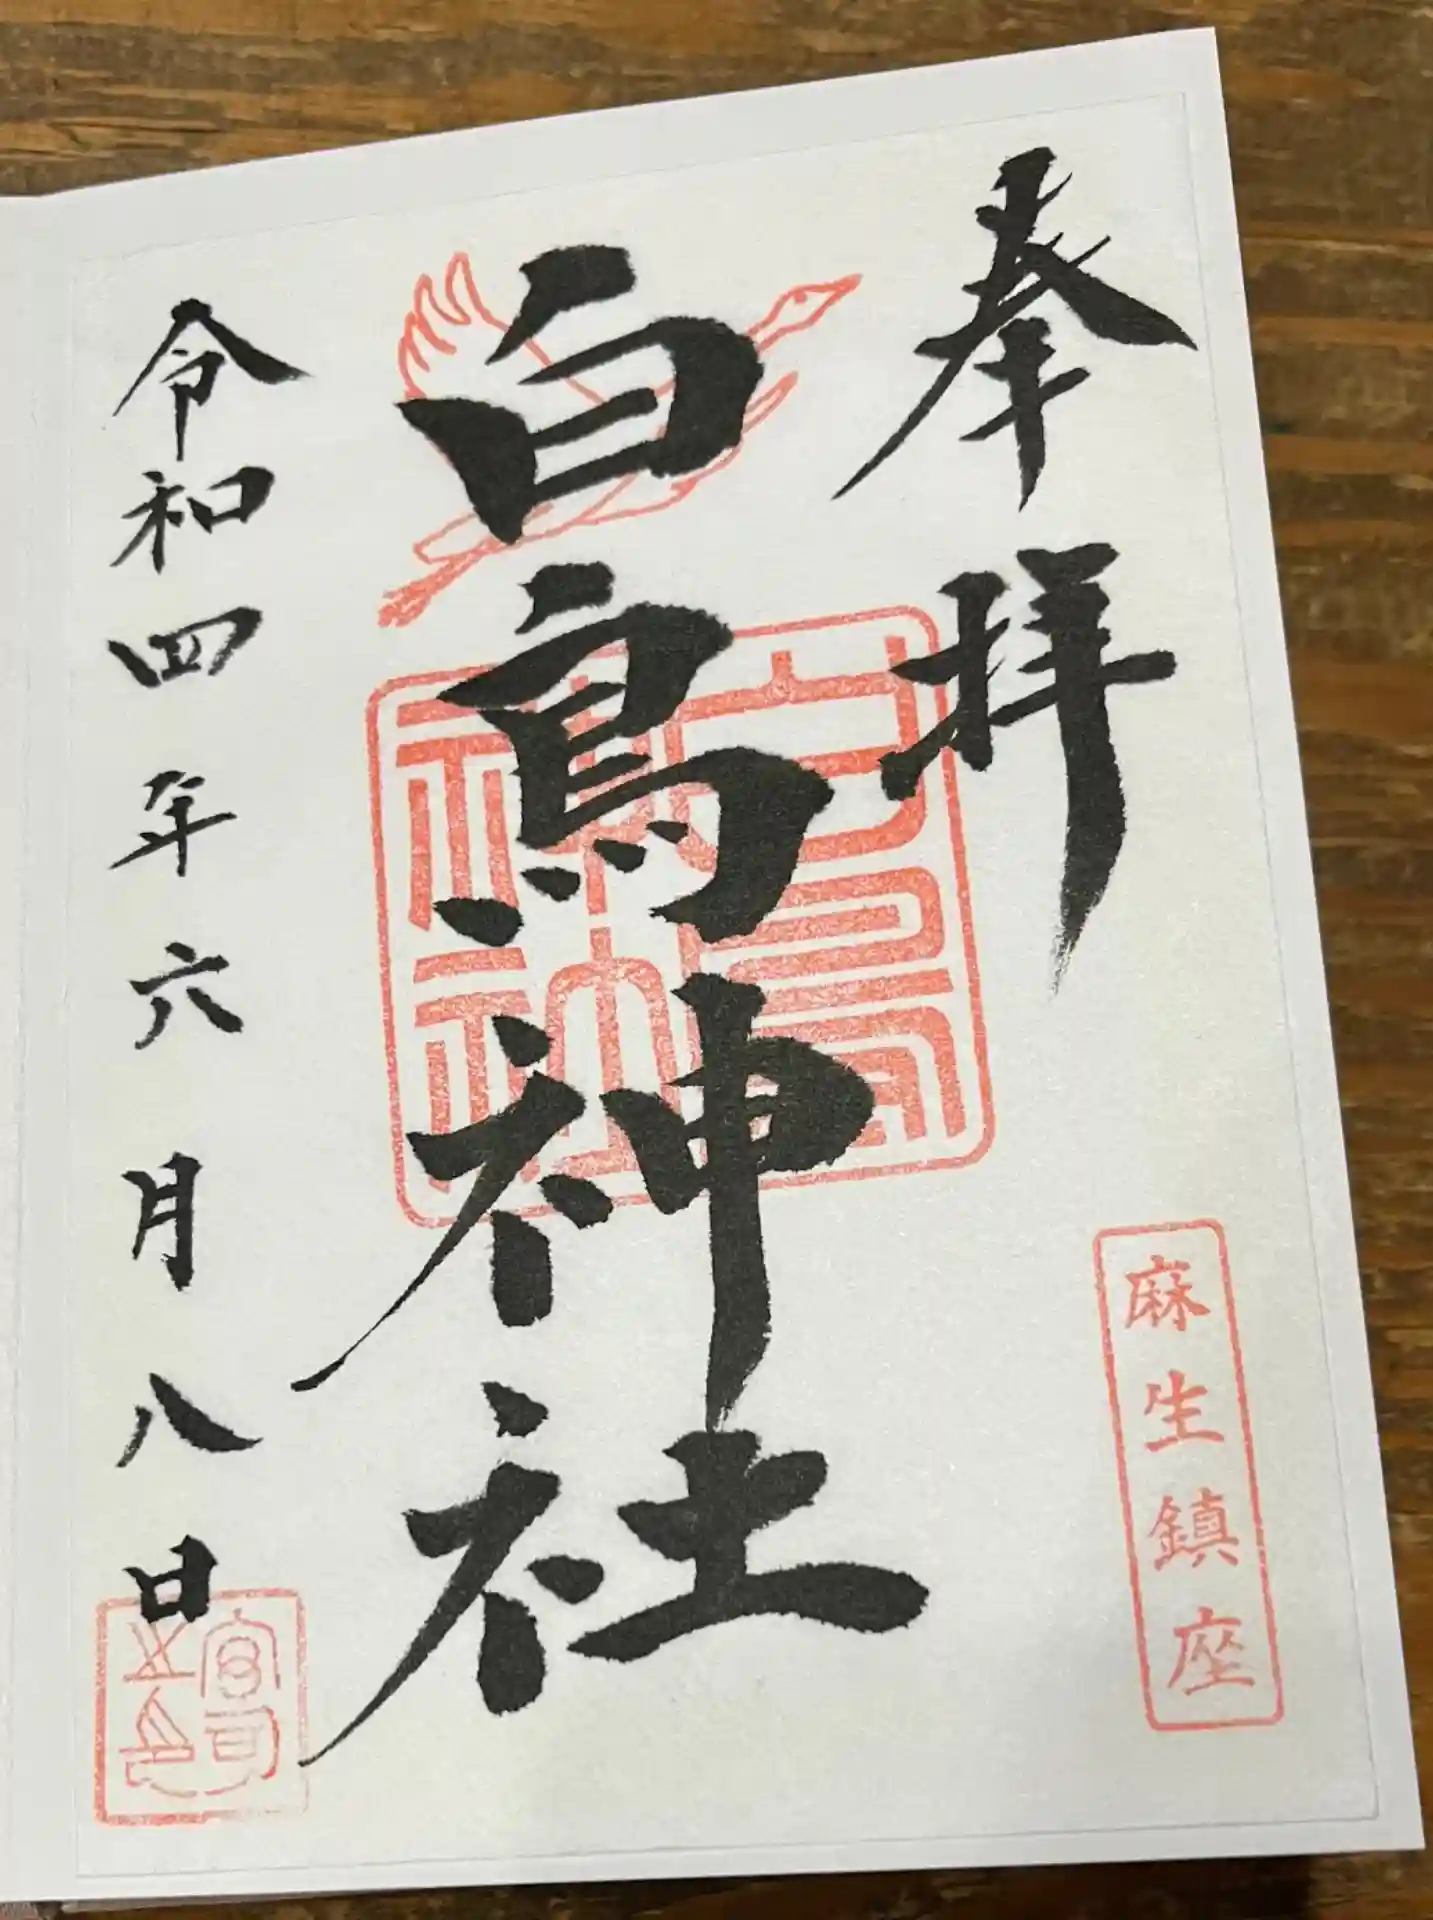 奉拝
麻生鎮座
白鳥神社
白鳥
神社
令和四年六月八日